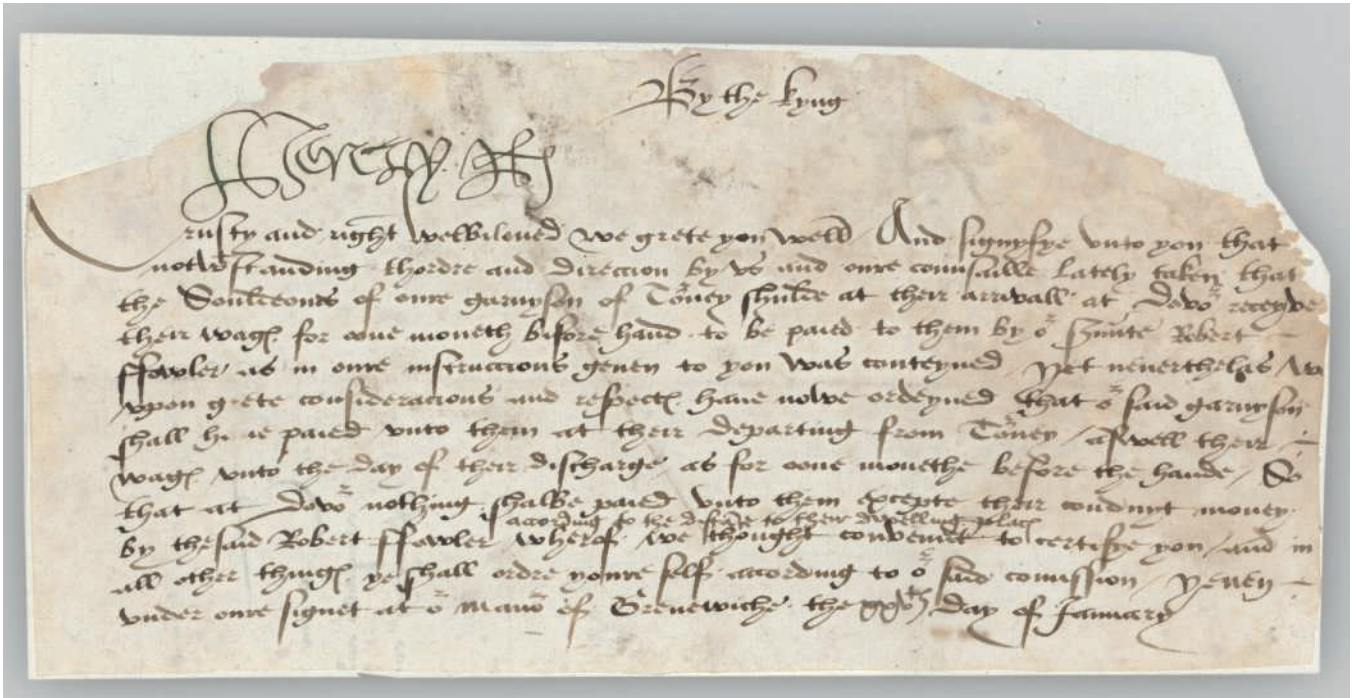 By the kyng
Henry R
Trusty and right welbiloued we grete you well And signyfye vnto you that
notwtstanding thordre and direccion by vs and oure counsaille lately taken that
the Souldeours of oure garnyson of Torney shulde at their arrivall at Dovor receyve
their wages for oone moneth before hand to be paied to them by or srunte Robert
ffowler as in oure instruccions geuen to you was conteyned Yet neuertheles we
vpon grete consideracions and respectes haue nowe ordeyned that or said garnyson
shall haue paied vnto them at their departing from Torney aswell their
wages vnto the day of their discharge as for oone monethe before the hande So
that at Dovor nothing shalbe paied vnto them excepte their conduyt money
according to the distance to their dwelling places
by thesaid Robert ffowler wherof we thought convenient to certifye you and in
all other thinges ye shall ordre youre self according to or said comission Yeuen
vnder oure signet at or Manor of Grenewiche the day of January